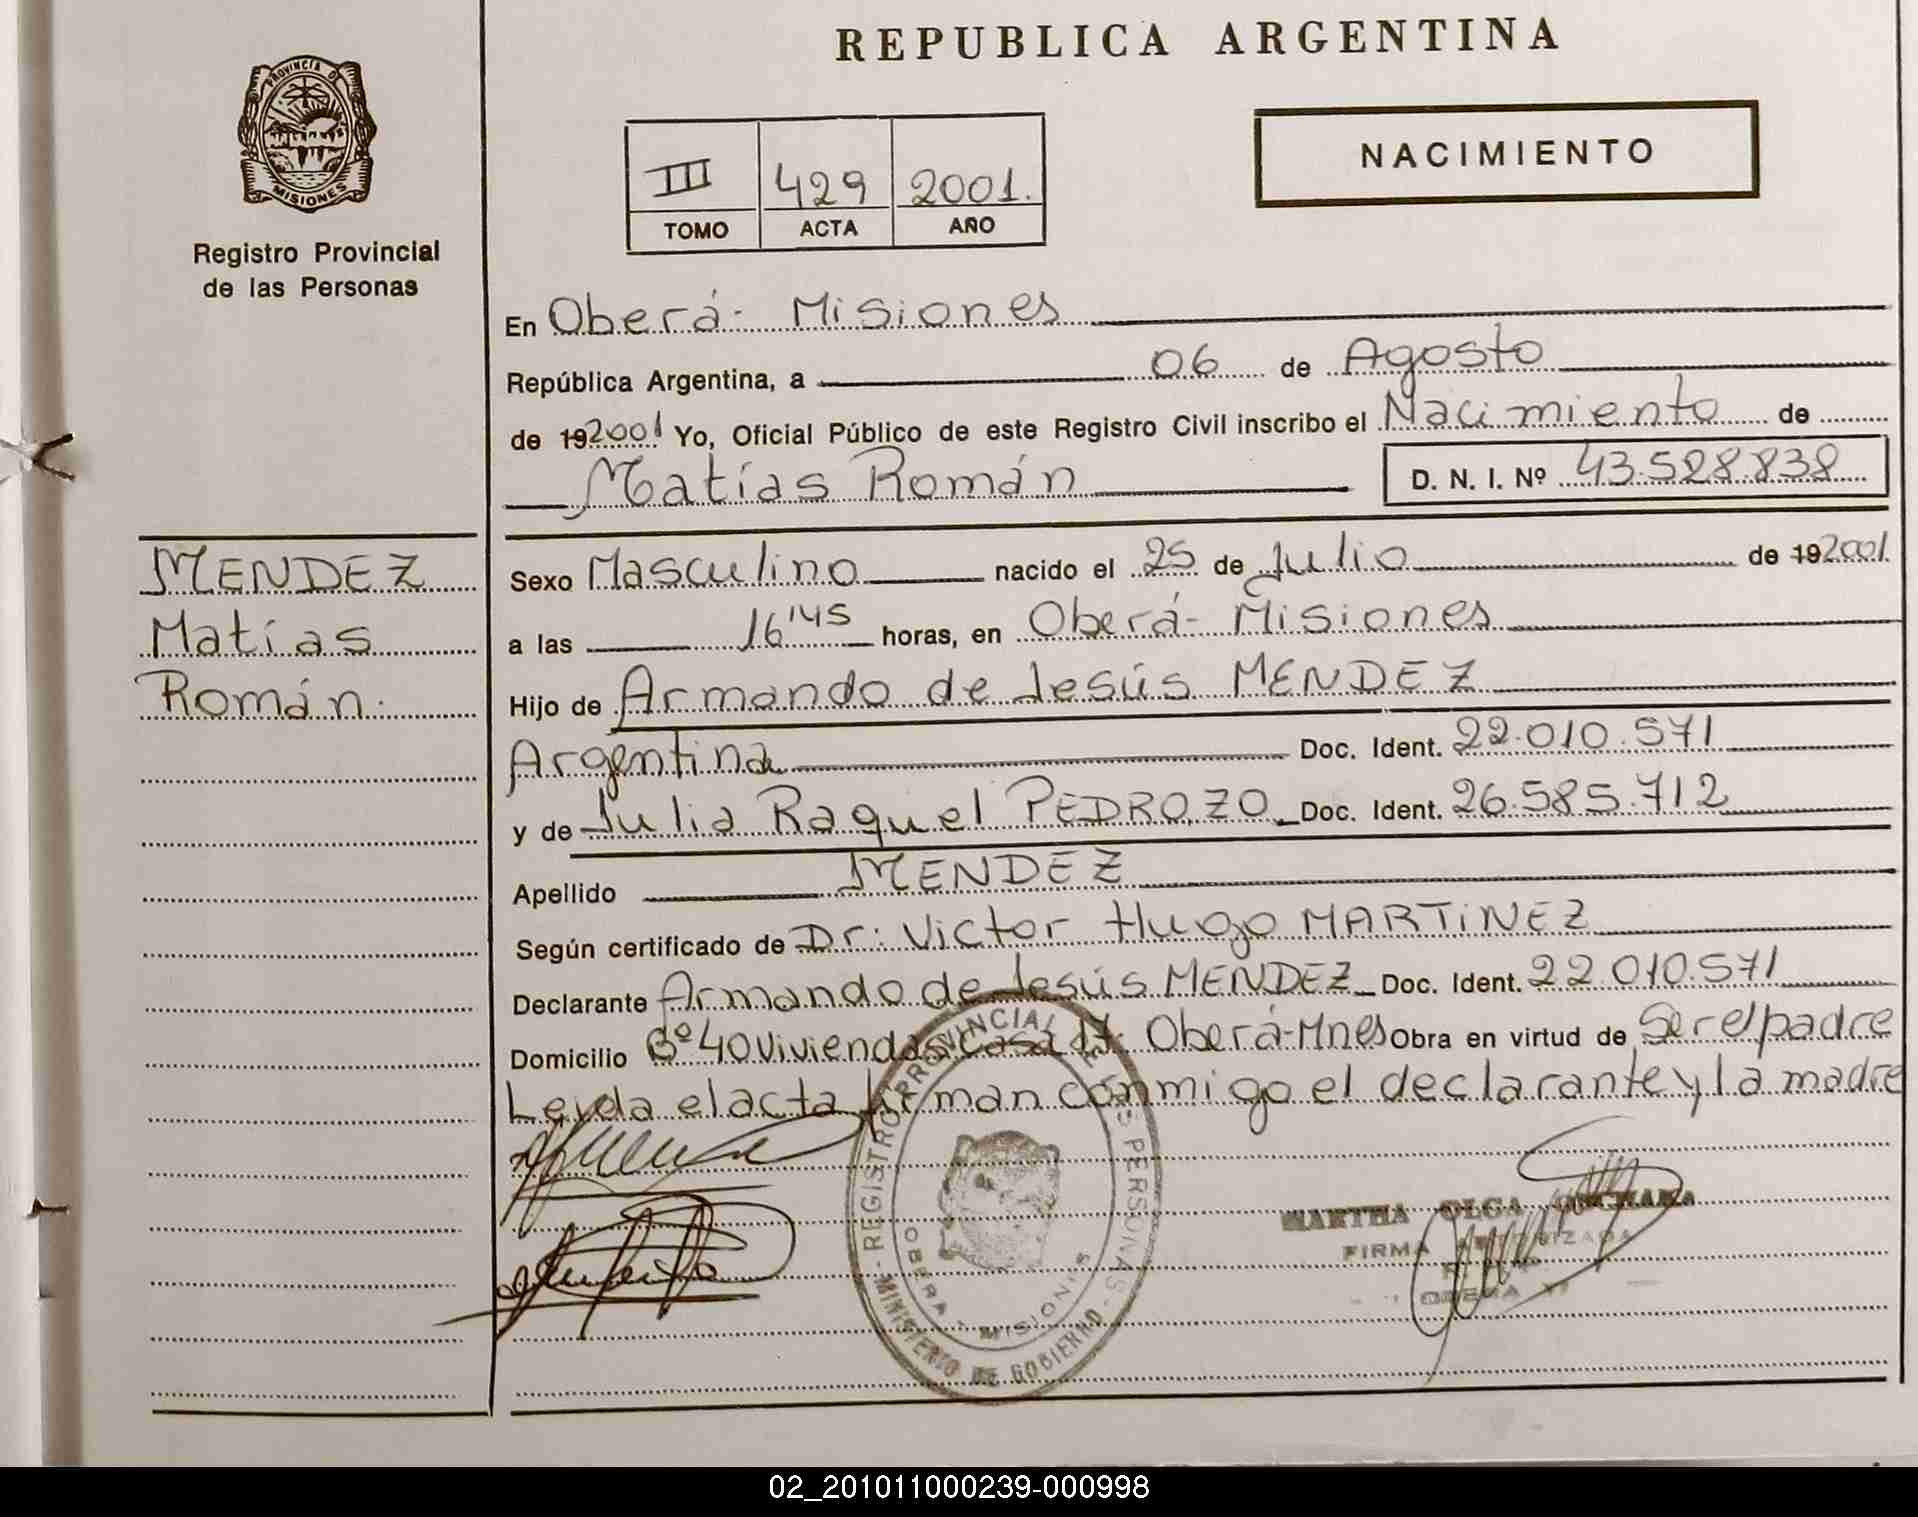 REPUBLICA ARGENTINA
PROVINCIA DE
MISIONES
Registro Provincial
de las Personas
III 429 2001.
TOMO ACTA AÑO
NACIMIENTO
En Oberá- Misiones
República Argentina, a 06 de Agosto
de 192001 Yo, Oficial Público de este Registro Civil inscribo el Nacimiento de
Matías Román D. N. I. Nº 43.528.838
MENDEZ
Matías
Román.
Sexo Masculino nacido el 25 de Julio de 192001.
a las 16'45 horas, en Oberá- Misiones
Hijo de Armando de Jesús MENDEZ
Argentina Doc. Ident. 22.010.571
y de Julia Raquel PEDROZO Doc. Ident. 26.585.712
Apellido MENDEZ
Según certificado de Dr: Victor Hugo MARTINEZ
Declarante Armando de Jesús MENDEZ Doc. Ident. 22.010.571
Domicilio Bº 40 Viviendas Casa 17. Oberá-Mnes Obra en virtud de Ser el padre
Leida el acta firman conmigo el declarante y la madre
REGISTRO PROVINCIAL DE LAS PERSONAS
- MINISTERIO DE GOBIERNO -
OBERA - MISIONES
MARTHA OLGA
FIRMA AUTORIZADA
02_201011000239-000998